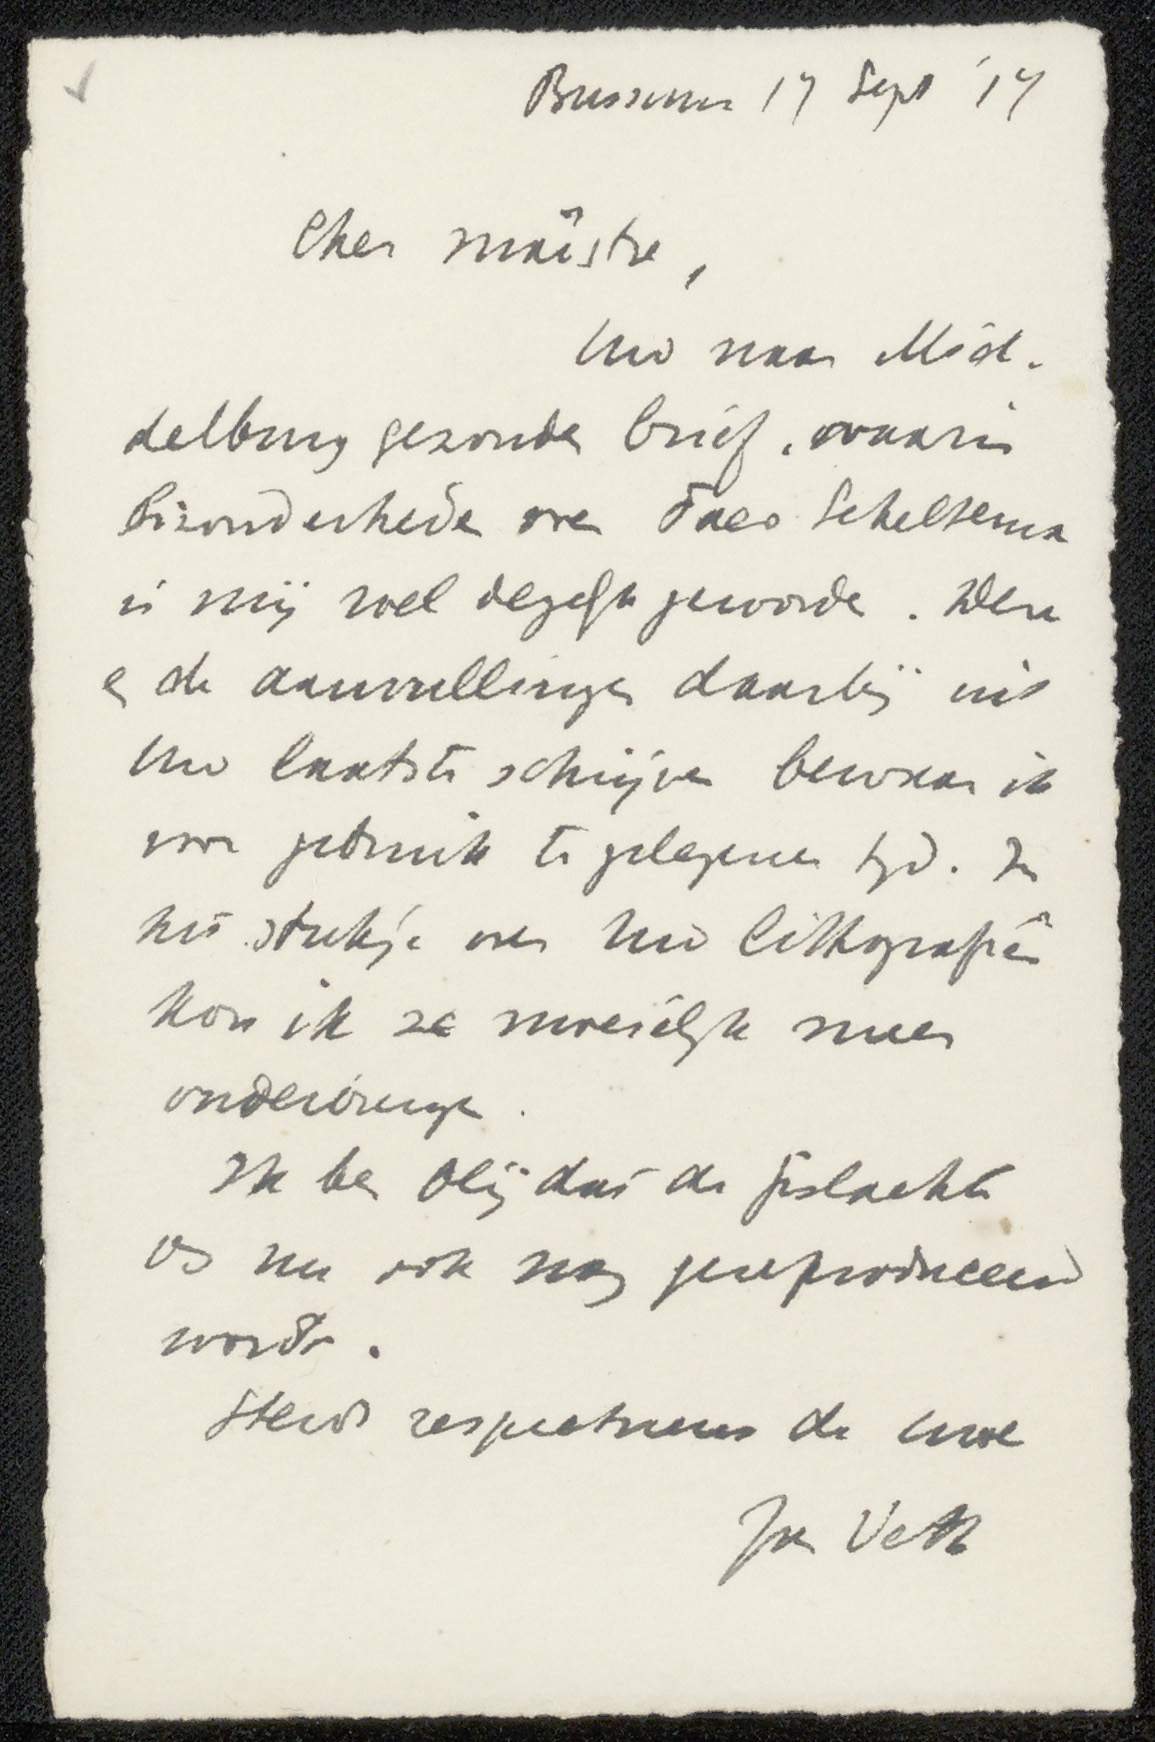 Bussum 17 Sept '17
Cher maître,
Uw naar Mid-
delburg gezonden brief, waarin
bizonderheden over Taco Scheltema
is mij wel degelijk geworden. Deze
en de aanvullingen daarbij uit
Uw laatste schrijven bewaar ik
voor gebruik te gelegener tyd. In
het stukje over Uw lithografiën
kon ik ze moeielyk meer
onderbrengen.
Ik ben blij dat de geslachte
os nu ook nog gereproduceerd
wordt.
Steeds respectueus de uwe
Jan Veth